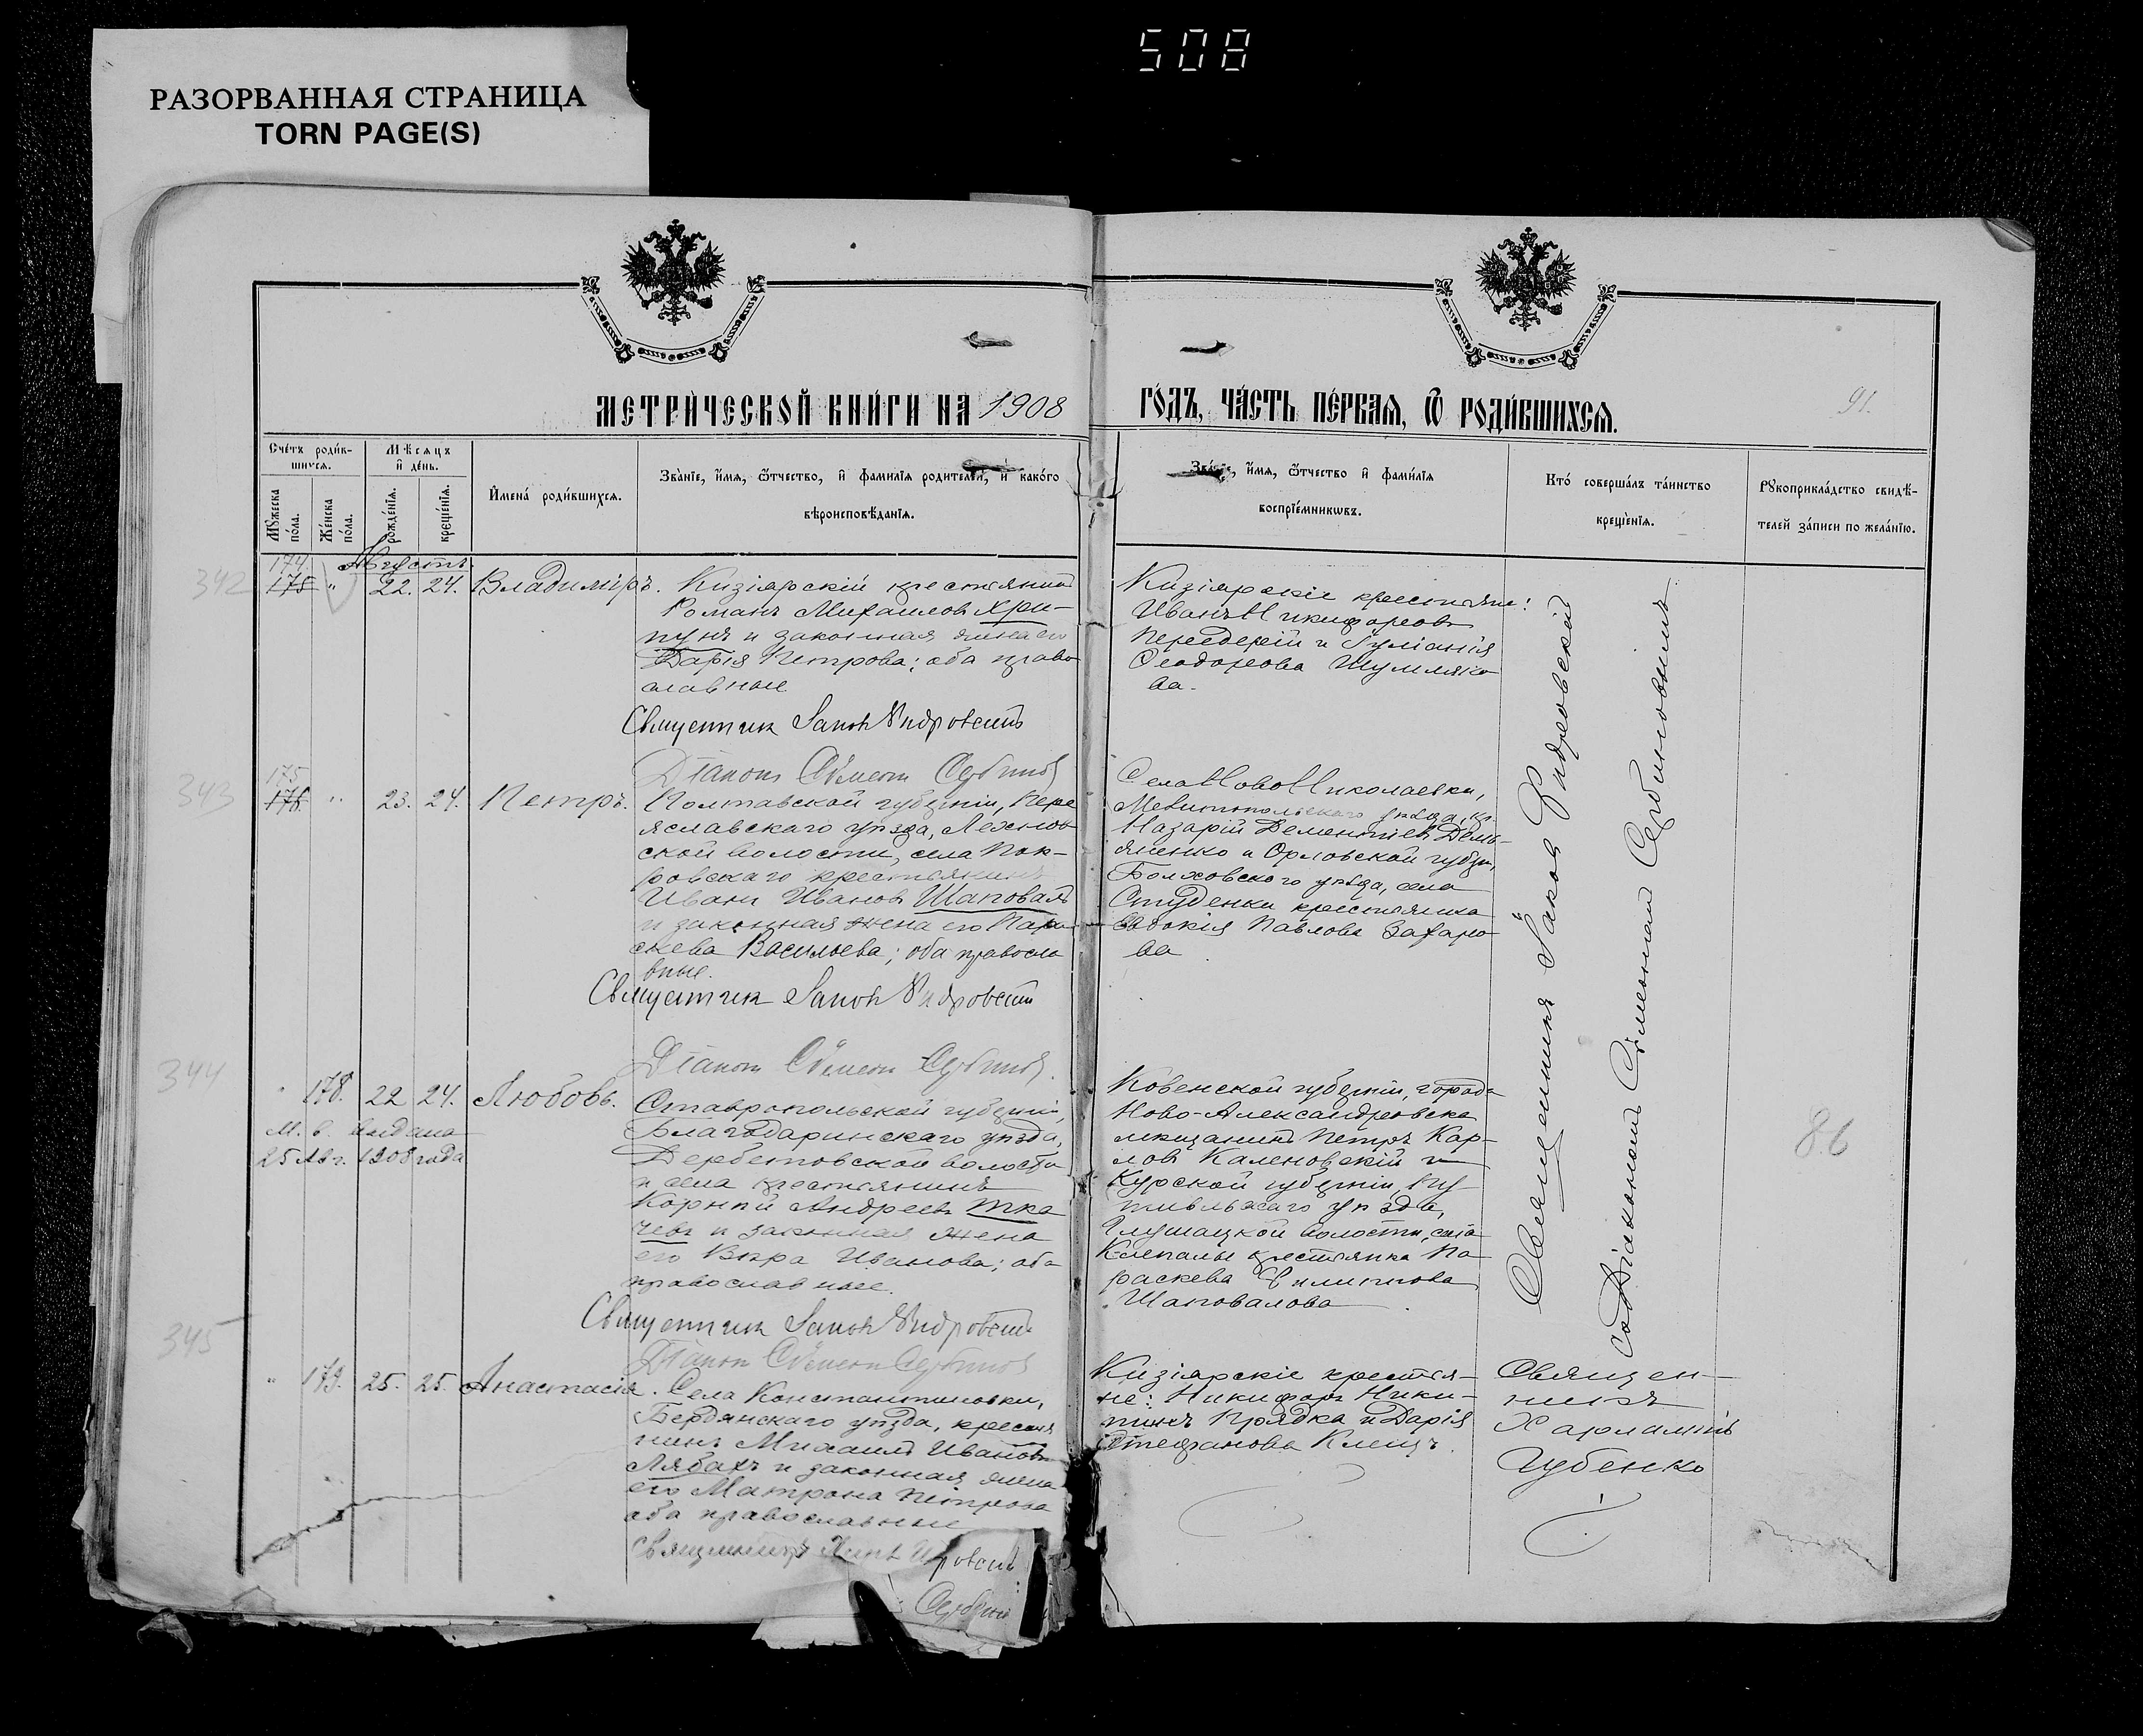 508
РАЗОРВАННАЯ СТРАНИЦА
TORN PAGE(S)
МЕТРИ́ЧЕСКОЙ КНИ́ГИ НА 1908
ГО́ДЪ, ЧА́СТЬ ПЕ́РВАЯ, Ѿ РОДИ́ВШИХСЯ.
91.
Сче́тъ роди́в-
шихся.
Мѣсяцъ
и де́нь.
Му́жеска
по́ла.
Же́нска
по́ла.
рожде́нія.
креще́нія.
Имена́ роди́вшихся.
Зва́ніе, и́мя, ѻ́тчество, и фами́лія роди́телей, и како́го
вѣроисповѣ́данія.
Зва́ніе, и́мя, ѻ́тчество и фами́лія
воспріе́мниковъ.
Кто́ соверша́лъ та́инство
креще́нія.
Рукоприкла́дство свидѣ́-
телей за́писи по жела́нію.
Августъ.
342
174.
175 " 22. 24. Владиміръ.
Кизіярскій крестьянинъ
Романъ Михаиловъ Хри-
пунъ и законная жена его
Дарія Петрова; оба право
славные
Священникъ Іаковъ
Діаконъ Симеонъ Сербиновъ
Кизіярскіе крестьяне:
Иванъ Никифоровъ
Передерій и Іуліанія
Ѳеодорова Шумляко
ва.
343
175.
176. " 23. 24. Петръ.
Полтавской губерніи, Пере
яславскаго уѣзда,
ской волости, села Пок-
ровскаго крестьянинъ
Иванъ Ивановъ Шаповалъ
и законная жена его Пара
скева Васильева; оба правосла
вные.
Священникъ Іаковъ
Діаконъ Симеонъ Сербиновъ.
Села Ново Николаевки,
Мелитопольскаго уѣзда, кр.
Назарій Дементіевъ Демь-
яненко и Орловской губерн,
Болховского уѣзда, села
Студенки крестьянка
Евдокія Павлова Захаро
ва
344
" 178. 22 24. Любовь.
М. в. выдана
25 Авг. 1908 года
Ставропольской губерніи,
Благодаринскаго уѣзда,
Дербетовской волости
и села крестьянинъ
Корнилій Андреевъ Тка
чевъ и законная жена
его Вѣра Иванова; оба
православные.
Священникъ Іаковъ
Діаконъ Симеонъ Сербиновъ
Ковенской губерніи, города
Ново-Александровска
мѣщанинъ Петръ Кар-
ловъ Каленовскій и
Курской губерніи, Пу
тивльскаго уѣзда,
Глушецкой волости, села
Клепалы крестьянка Па-
раскева Филиппова
Шаповалова
Священникъ Іаковъ
съ Діакономъ Симеономъ Сербиновымъ
86
345
" 179. 25. 25. Анастасія.
Села Константиновки,
Бердянскаго уѣзда, крестья
нинъ Михаилъ Ивановъ
Лябахъ и законная жена
его Матрона Петрова
оба православные
Священникъ
Сербинов
Кизіярскіе крестья-
не: Никифоръ Ники-
тинъ Прядка и Дарія
Стефанова Клещъ.
Священ-
никъ
Харлампій
Губенко